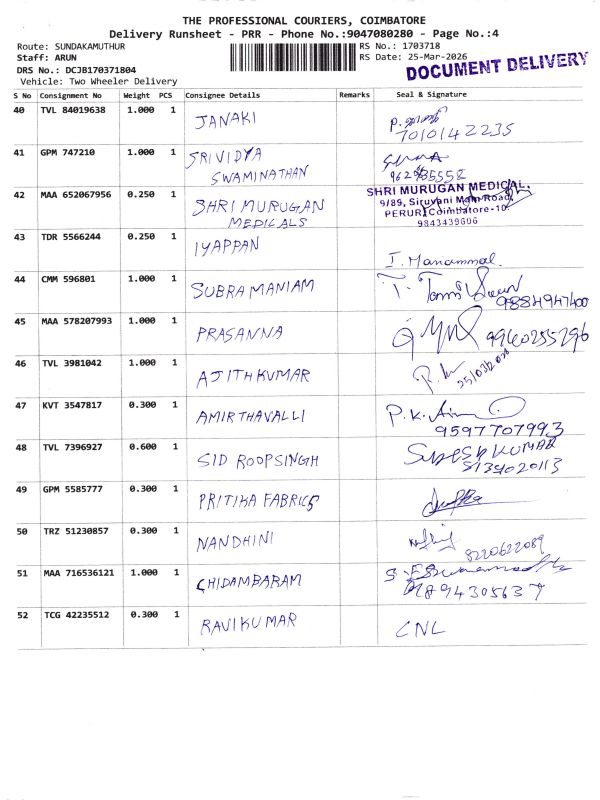 THE PROFESSIONAL COURIERS, COIMBATORE
Delivery Runsheet - PRR - Phone No.:9047080280 - Page No.:4
Route: SUNDAKAMUTHUR
RS No.: 1703718
Staff: ARUN
RS Date: 25-Mar-2026
DRS No.: DCJB170371804
DOCUMENT DELIVERY
Vehicle: Two Wheeler Delivery
S No Consignment No Weight PCS Consignee Details Remarks Seal & Signature
40 TVL 84019638 1.000 1 JANAKI P.
7010142235
41 GPM 747210 1.000 1 SRIVIDYA
SWAMINATHAN
42 MAA 652067956 0.250 1 SHRI MURUGAN
MEDICALS
SHRI MURUGAN MEDICAL,
9/89, Siruvani Main Road,
PERUR, Coimbatore-10.
9843439606
43 TDR 5566244 0.250 1 IYAPPAN I. Manammal.
44 CMM 596801 1.000 1 SUBRAMANIAM T.
9884947400
45 MAA 578207993 1.000 1 PRASANNA 9940255296
46 TVL 3981042 1.000 1 AJITHKUMAR
25/03/2026
47 KVT 3547817 0.300 1 AMIRTHAVALLI P.K.
9597707993
48 TVL 7396927 0.600 1 SID ROOPSINGH SURESH KUMAR
49 GPM 5585777 0.300 1 PRITIKA FABRICS
50 TRZ 51230857 0.300 1 NANDHINI
8220622089
51 MAA 716536121 1.000 1 CHIDAMBARAM S.
52 TCG 42235512 0.300 1 RAVIKUMAR CNL